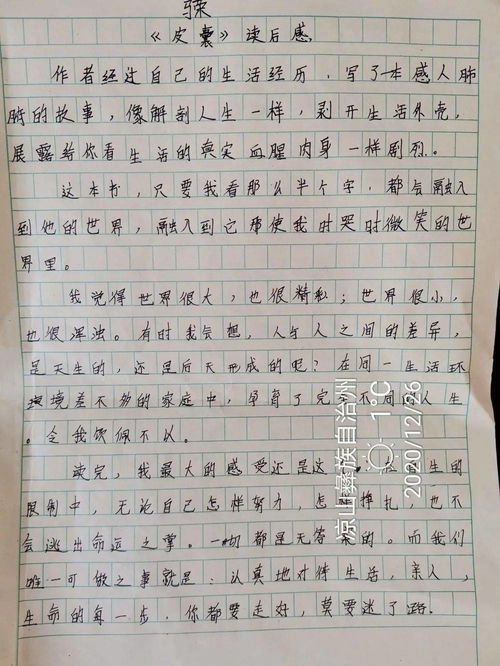 《皮囊》读后感
作者经过自己的生活经历,写了一本感人肺
腑的故事,像解剖人生一样,剥开生活外壳,
展露给你看生活的真实血腥肉身一样剧烈。
这本书,只要我看那么半个字,都会融入
到他的世界,融入到它那使我时哭时微笑的世
界里。
我觉得世界很大,也很精彩;世界很小,
也很浑浊。有时我会想,人与人之间的差异,
是天生的,还是后天形成的呢?在同一生活环
境差不多的家庭中,孕育了完全不同的人生
。令我钦佩不以。
读完,我最大的感受还是这 生的
限制中,无论自己怎样努力,怎样挣扎,也不
会逃出命运之掌。一切都是无答案的。而我们
唯一可做之事就是:认真地对待生活,亲人,
生命的每一步,你都要走好,莫要迷了路.
凉山彝族自治州
1°C
2020/12/26